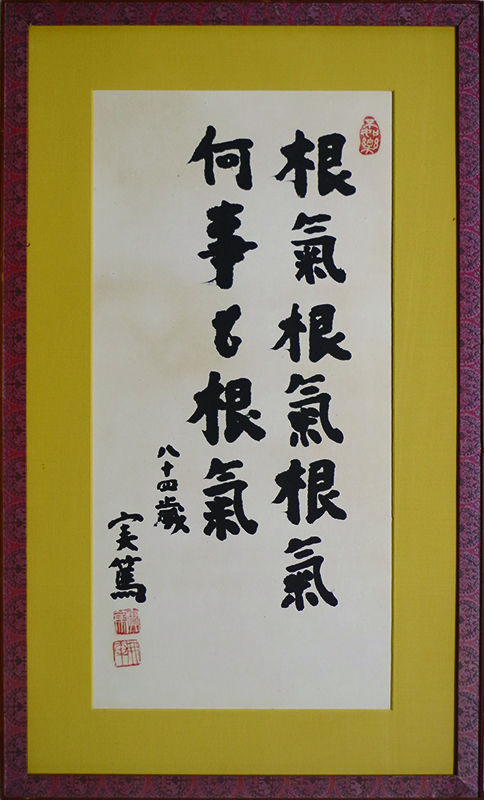 根氣根氣根氣
何事も根氣
八十四歲
実篤